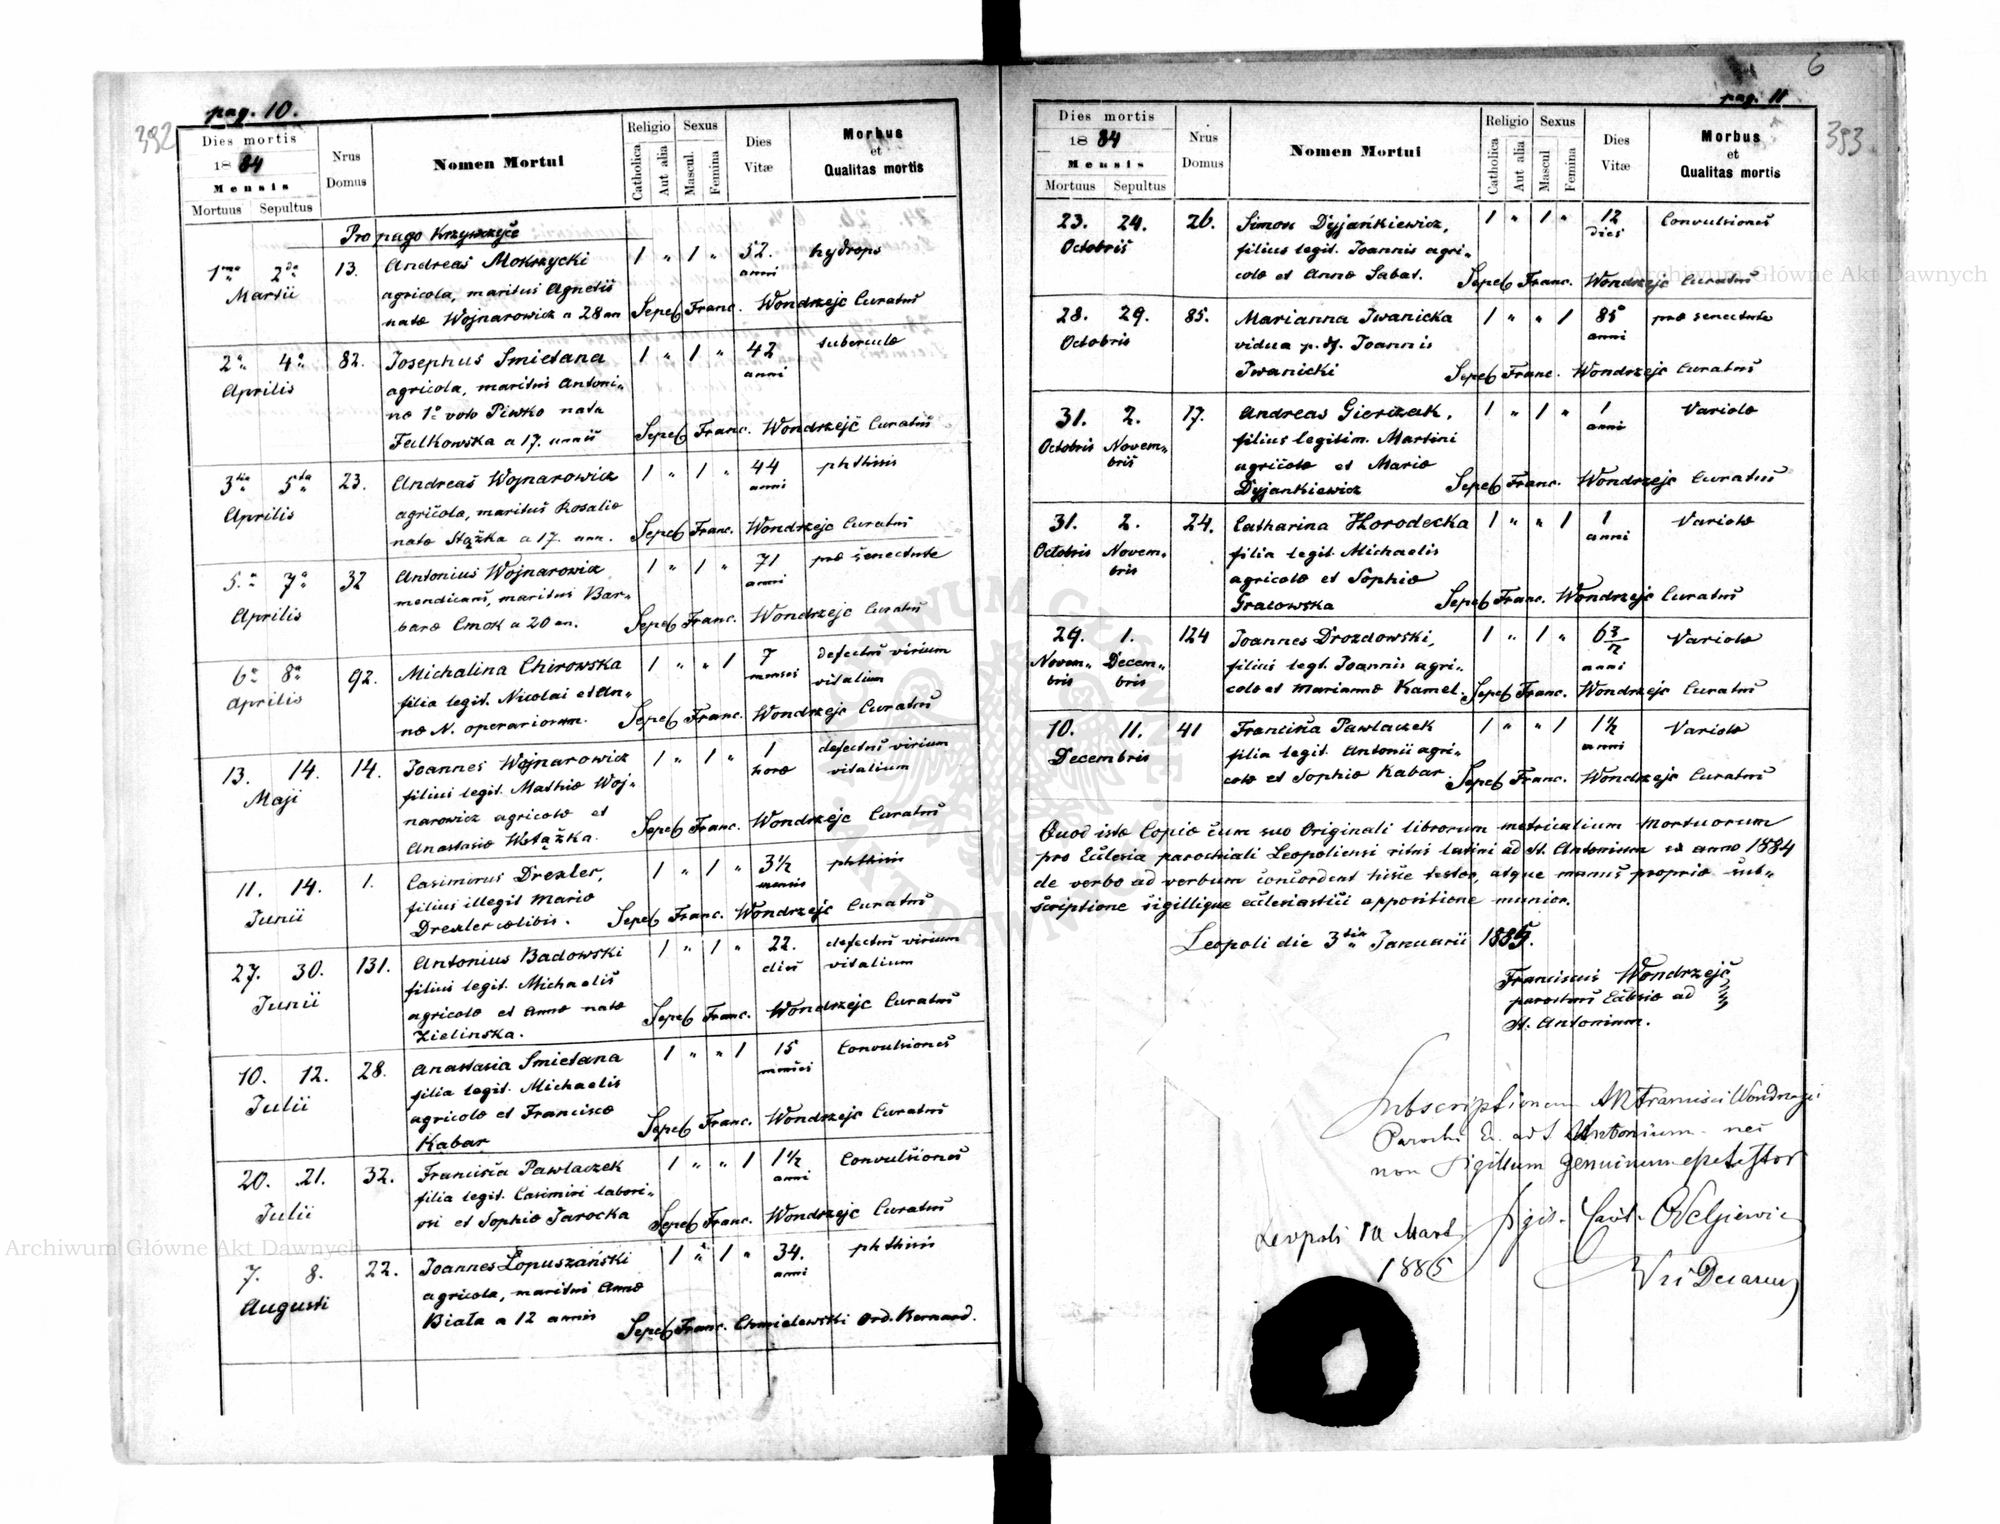 pag. 10.
392
Dies mortis
1884
Mensis
Mortuus Sepultus
Nrus
Domus
Nomen Mortui
Religio
Catholica
Aut alia
Sexus
Mascul
Femina
Dies
Vitæ
Morbus
et
Qualitas mortis
Pro pago Krzywczyce
1ma 2da 13. Andreas Mokrzycki 1 " 1 " 52. hydrops
Martii agricola, maritus Agnetis anni
natæ Wojnarowicz a 28 an Sepel Franc. Wondrzejc Curatus
2a 4a 82. Josephus Smietana 1 " 1 " 42 tuberculæ
Aprilis agricola, maritus Antoni- anni
næ 1o voto Piwko nata
Falkowska a 17. annis Sepel Franc. Wondrzejc Curatus
3tia 5ta 23. Andreas Wojnarowicz 1 " 1 " 44 phthisis
Aprilis agricola, maritus Rosaliæ anni
natæ Stążka a 17. ann. Sepel Franc. Wondrzejc Curatus
5.a 7a 32 Antonius Wojnarowicz 1 " 1 " 71 præ senectute
Aprilis mendicans, maritus Bar- anni
baræ Cmok a 20 an. Sepel Franc. Wondrzejc Curatus
6a 8a 92. Michalina Chirowska 1 " " 1 7 defectus virium
Aprilis filia legit. Nicolai et An- menses vitalium
næ N. operariorum. Sepel Franc. Wondrzejc Curatus
13. 14. 14. Joannes Wojnarowicz 1 " 1 " 1 defectus virium
Maji filius legit. Mathiæ Woj- horæ vitalium
narowicz agricolæ et
Anastasiæ Wstążka. Sepel Franc. Wondrzejc Curatus
11. 14. 1. Casimirus Drexler, 1 " 1 " 3½ phthisis
Junii filius illegit Mariæ mensis
Drexler cælibis. Sepel Franc. Wondrzejc Curatus
27. 30. 131. Antonius Badowski 1 " 1 " 22. defectus virium
Junii filius legit. Michaelis dies vitalium
agricolæ et Annæ natæ
Zielinska. Sepel Franc. Wondrzejc Curatus
10. 12. 28. Anastasia Smietana 1 " " 1 15 Convulsiones
Julii filia legit. Michaelis menses
agricolæ et Franciscæ
Kabar Sepel Franc. Wondrzejc Curatus
20. 21. 32. Francisca Pawlaczek 1 " " 1 1½ Convulsiones
Julii filia legit. Casimiri labori- anni
osi et Sophiæ Jarocka Sepel Franc. Wondrzejc Curatus
7. 8. 22. Joannes Łopuszański 1 " 1 " 34. phthisis
Augusti agricola, maritus Annæ anni
Biała a 12 annis Sepel Franc. Chmielewski Ord. Bernard.
6
pag. 11
393
Dies mortis
1884
Mensis
Mortuus Sepultus
Nrus
Domus
Nomen Mortui
Religio
Catholica
Aut alia
Sexus
Mascul
Femina
Dies
Vitæ
Morbus
et
Qualitas mortis
23. 24. 26. Simon Dyjańkiewicz, 1 " 1 " 12 Convulsiones
Octobris filius legit. Joannis agri- dies
colæ et Annæ Sabat. Sepel Franc. Wondrzejc Curatus
28. 29. 85. Marianna Iwanicka 1 " " 1 85 præ senectute
Octobris vidua p. df. Joannis anni
Iwanicki Sepel Franc. Wondrzejc Curatus
31. 2. 17. Andreas Gierczak, 1 " 1 " 1 Variolæ
Octobris Novem- filius legitim. Martini anni
bris agricolæ et Mariæ
Dyjankiewicz Sepel Franc. Wondrzejc Curatus
31. 2. 24. Catharina Horodecka 1 " " 1 1 Variolæ
Octobris Novem- filia legit. Michaelis anni
bris agricolæ et Sophiæ
Gracowska Sepel Franc. Wondrzejc Curatus
29. 1. 124 Joannes Drozdowski, 1 " 1 " 6 Variolæ
Novem- Decem- filius legt. Joannis agri- anni
bris bris colæ et Mariannæ Kamel. Sepel Franc. Wondrzejc Curatus
10. 11. 41 Francisca Pawlaczek 1 " " 1 1½ Variolæ
Decembris filia legit. Antonii agri- anni
colæ et Sophiæ Kabar. Sepel Franc. Wondrzejc Curatus
Quod istæ Copiæ cum suo Originali librorum metricalium Mortuorum
pro Ecclesia parochiali Leopoliensi ritus latini ad St. Antonium ex anno 1884
de verbo ad verbum concordent hisce testor, atque manus propriæ sub-
scriptione sigillique ecclesiastici appositione munior.
Leopoli die 3tia Januarii 1885.
Franciscus Wondrzejc
parochus Ecclesiæ ad
St. Antonium.
Subscriptionem Francisci Wondrzejc
Parochi Ec. ad S. Antonium nec
non Sigillum genuinum esse testor
Leopoli 10 Mart
1885
Archiwum Główne Akt Dawnych
Archiwum Główne Akt Dawnych
ARCHIWUM GŁÓWNE AKT DAWNYCH